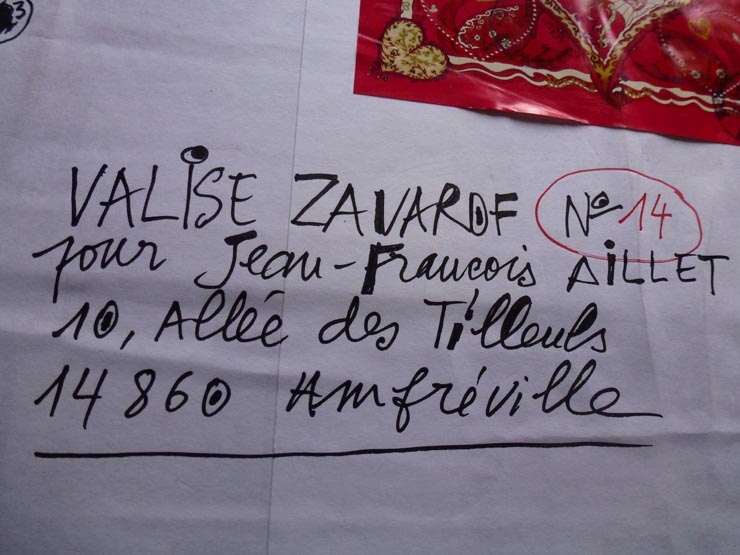 3
VALISE ZAVAROF No 14
pour Jean-Francois AILLET
10, Allée des Tilleuls
14860 Amfréville